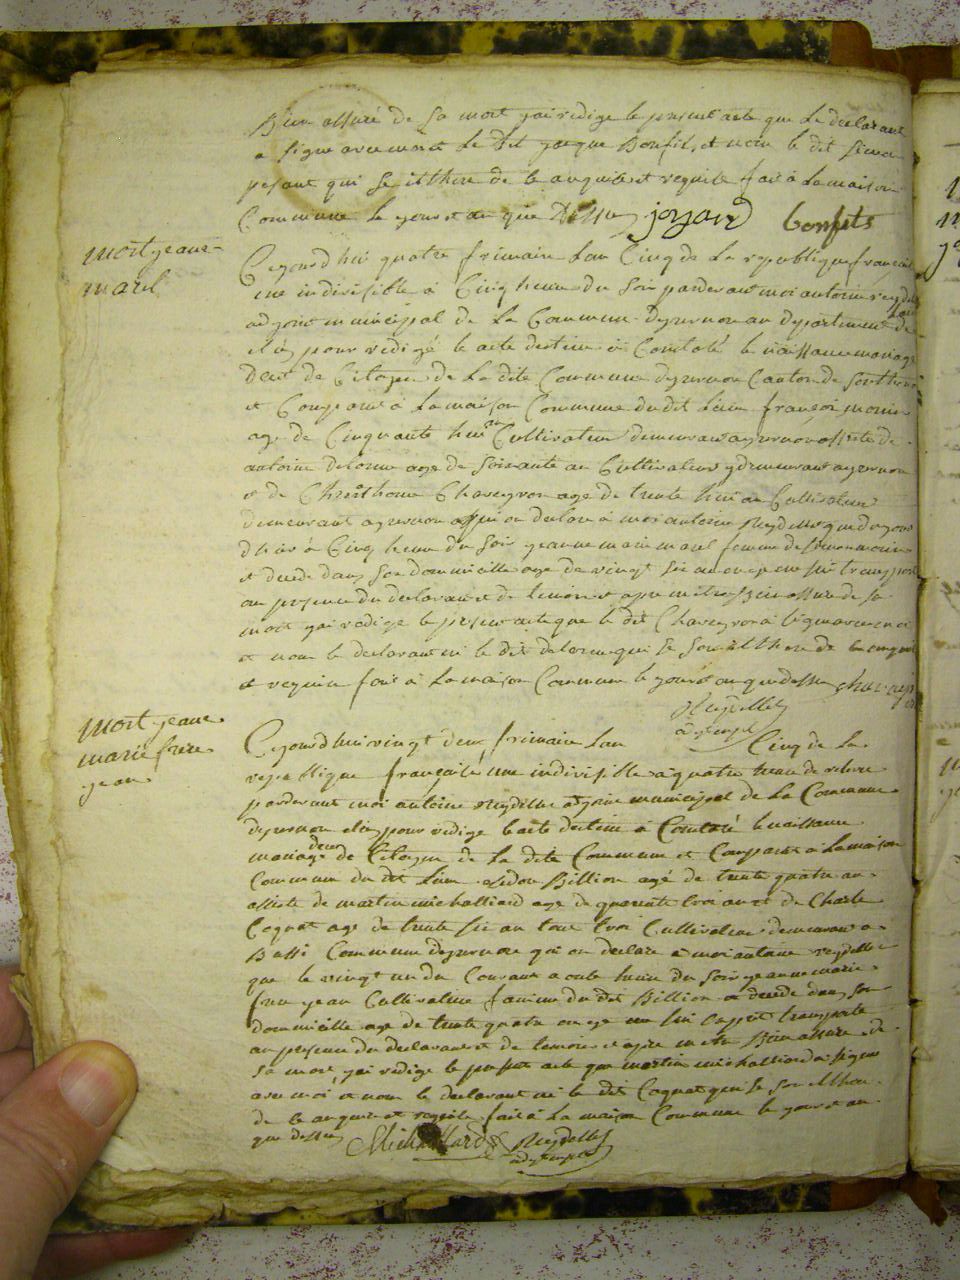 Bien assuré de sa mort jai redige le present acte que le declarant
a signe avec moi et le dit jacque Bonfils et non le dit
pesant qui se ilthere de ce anquis et requis fait à La maison
Commune le jour et an que dessus jorjard bonfils
mort jeane
marel
Cejourdhui quatre frimaire lan Cinq de La republique francaise
une indivisible à Cinq heure du soir pardevant moi antoine reydellet
adjoint municipal de La Commune dyzernon au departement de
elu pour redigé le acte destiné à Constaté le naissance mariage
deces de Citoyen de La dite Commune dyzernon Canton de
et Comparu à La maison Commune du dit Lieu françois monin
age de Cinquante huit Cultivateur demeurant ayzernon assiste de
antoine delorme age de soixante an Cultivateur y demeurant ayzernon
et de Chaveyron age de trente huit an Cultivateur
demeurant ayzernon qui a declare à moi antoine Reydellet que du jour
dhier à Cinq heure du soir jeanne marie marel femme de monin
et decede dans son domicille age de vingt six an transporté
au presence du declarant et de temoin et apres metre Bien assure de sa
mort jai redige le present acte que le dit Chaveyron à signe avec moi
et non le declarant ni le dit delorme qui se son ilthere de ce enquis
et requis fait à La maison Commune le jour et an que dessus
Reydellet
adjoint
mort jeane
marie frere
jean
Cejourdhui vingt deux frimaire lan Cinq de La
republique française une indivisible a quatre heure de relevee
pardevant moi antoine Reydellet adjoint municipal de La Commune
dyzernon elu pour redige le acte destine à Constaté le naissance
mariage deces de Citoyen de La dite Commune et Comparu à La maison
Commune du dit Lieu Billion agé de trente quatre an
assiste de martin michalliard age de quarante troi an et de Charle
Coquat age de trente six an tout troi Cultivateur demeurant a
Bussi Commune dyzernon qui on declare à moi antoine reydellet
que le vingt un du Courant a onte heure du soir jeanne marie
frere jean Cultivatrice famme du dit Billion et decede dans son
domicille age de trente quatre an transporté
au presence du declarant et de temoin et apres metre Bien assure de
sa mort jai redige le present acte que martin michalliard a signe
avec moi et non le declarant ni le dit Coquat qui se son ilthere
de ce anquis et requis fait à La maison Commune le jour et an
que dessus Michalliard Reydellet
adjoint